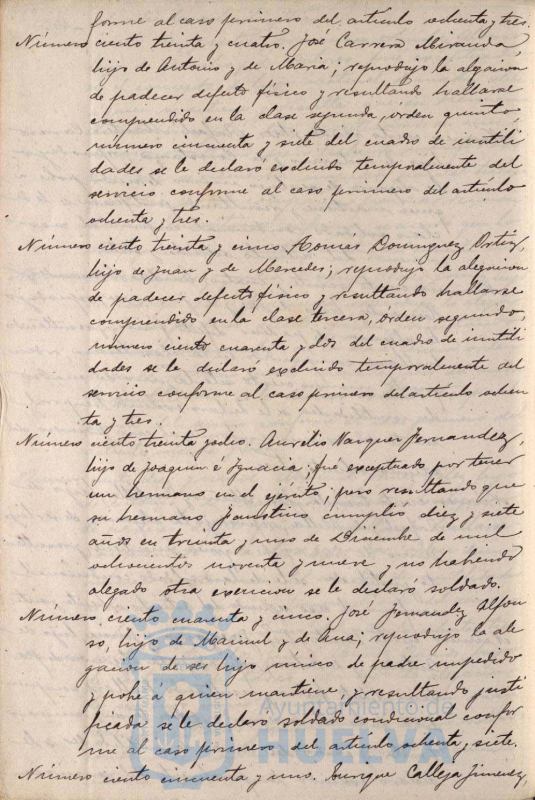 forme al caso primero del artículo ochenta y tres.
Número ciento treinta y cuatro. José Carrera Miranda,
hijo de Antonio y de Maria; reprodujo la alegacion
de padecer defecto físico y resultando hallarse
comprendido en la clase segunda, orden quinto,
número cincuenta y siete del cuadro de inutili
dades se le declaró excluido temporalmente del
servicio conforme al caso primero del artículo
ochenta y tres.
Número ciento treinta y cinco Tomás Dominguez Ortiz,
hijo de Juan y de Mercedes; reprodujo la alegacion
de padecer defecto físico y resultando hallarse
comprendido en la clase tercera, orden segundo,
número ciento cuarenta y dos del cuadro de inutili
dades se le declaró excluido temporalmente del
servicio conforme al caso primero del artículo ochen
ta y tres.
Número ciento treinta y ocho. Aurelio Vazquez Fernandez,
hijo de Joaquin é Ignacia; fué exceptuado por tener
un hermano en el ejército; pero resultando que
su hermano Faustino cumplió diez y siete
años en treinta y uno de Diciembre de mil
ochocientos noventa y nueve y no habiendo
alegado otra exencion se le declaró soldado.
Número ciento cuarenta y cinco. José Fernandez Alfon
so, hijo de Manuel y de Ana; reprodujo la ale
gacion de ser hijo único de padre impedido
y pobre á quien mantiene, y resultando justi
ficada se le declaró soldado condicional confor
me al caso primero del artículo ochenta y siete.
Número ciento cincuenta y uno. Enrique Calleja Jimenez,
Ayuntamiento de
HUELVA